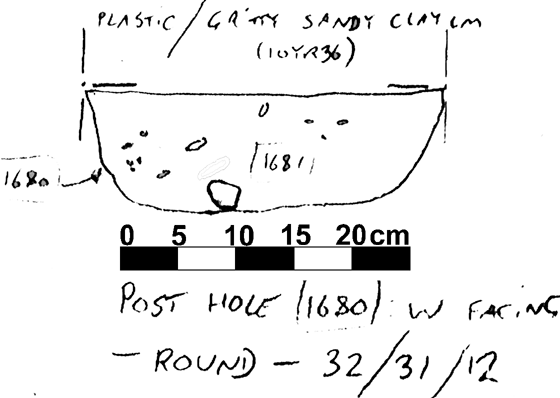 PLASTIC / GRITTY SANDY CLAY LM
(10YR36)
1681
1680
0 5 10 15 20cm
POST HOLE (1680) W FACING
- ROUND - 32/31/12